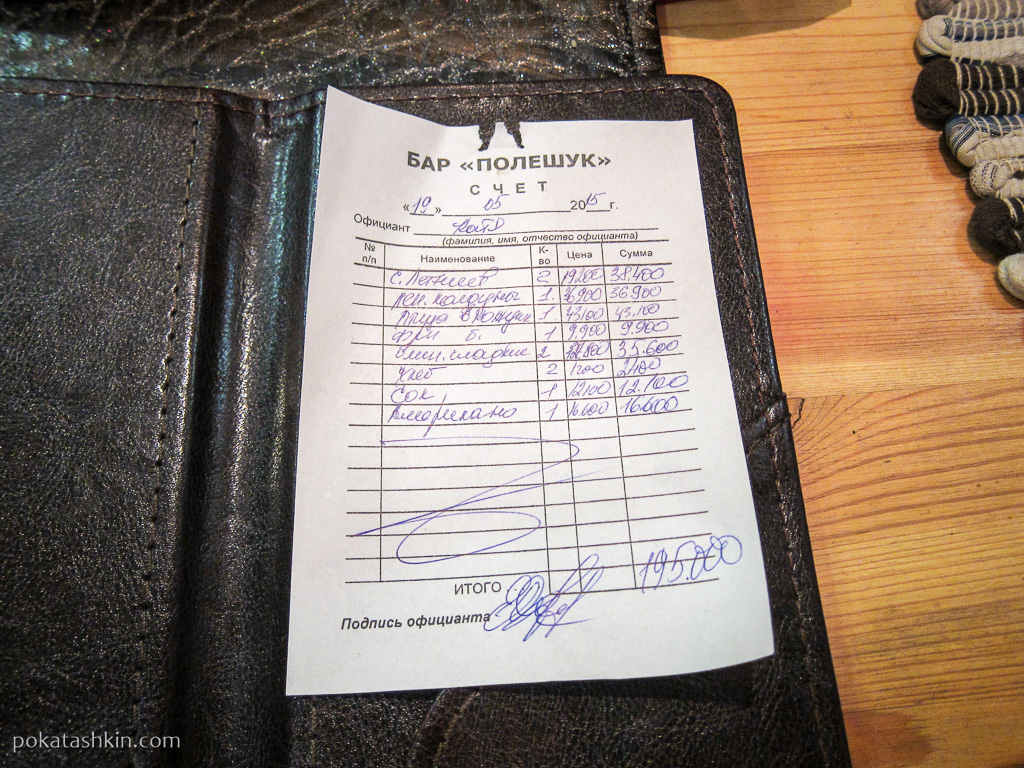 БАР «ПОЛЕШУК»
СЧЕТ
«19» 05 2015 г.
Официант Катя
(фамилия, имя, отчество официанта)
№ п/п Наименование К-во Цена Сумма
С. Летний 2 19200 38.400
колдуны 1 36900 36.900
Птица в кожухе 1 43100 43.100
Фри б. 1 9.900 9.900
сладкие 2 35.600
Хлеб 2 1200 2400
Сок 1 12100 12.100
Американо 1 16600 16.600
ИТОГО 195.000
Подпись официанта
pokatashkin.com